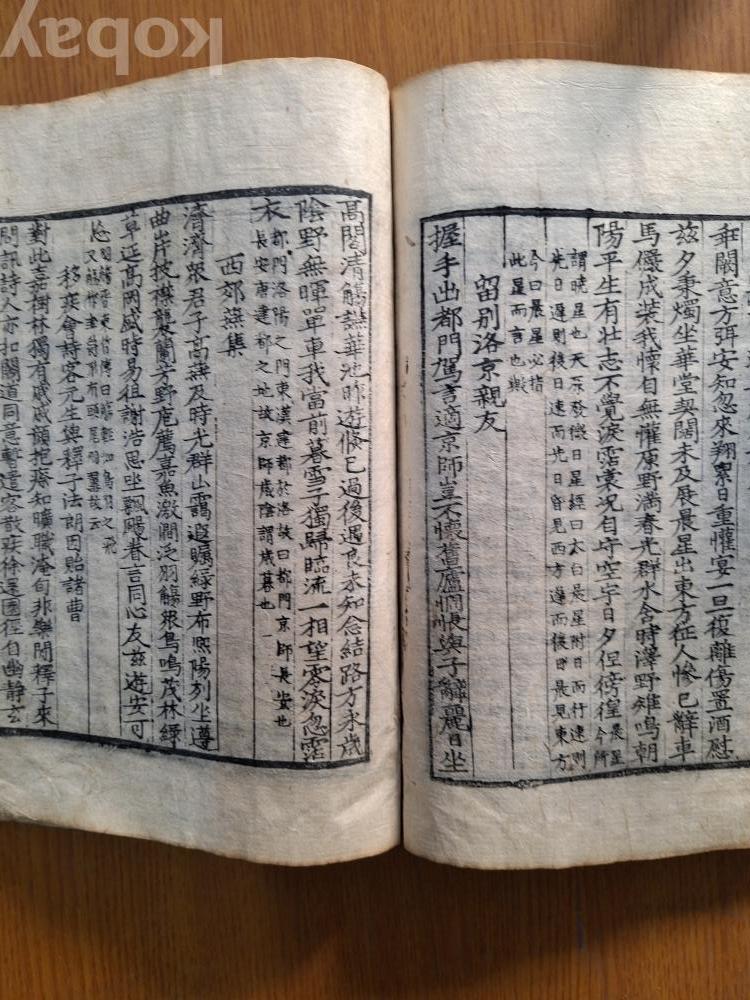 乖闊意方弭安知忽來翔累日重懽宴一旦復離傷置酒慰
兹夕秉燭坐華堂契闊未及展晨星出東方征人慘已辭車
馬儼成装我懷自無懽原野滿春光群水含時澤野雉鳴朝
陽平生有壮志不覺淚霑裳况自守空宇日夕但徬徨晨星今所
謂曉星也天不發微日星經曰太白晨星附日而行速則
先日遲則後日速而先日昏見西方遲而後日晨見東方
今曰晨星必指
此星而言也歟
留別洛京親友
握手出都門駕言適京師豈不懷舊廬惆悵與子辭麗日坐
高閣清觴讌華池昨遊倏已過後遇良未知念結路方永歲
陰野無暉單車我當前暮雪子獨歸臨流一相望零淚忽霑
衣都門洛陽之門東漢建都於洛故曰都門京師長安也
長安唐建都之地故京師歲陰謂歲暮也
西郊燕集
濟濟衆君子高讌及時光群山靄遐矚緑野布熙陽列坐遵
曲岸披襟襲蘭芳野庖薦嘉魚激澗泛羽觴衆鳥鳴茂林緑
草延高岡盛時易徂謝浩思坐飄颺眷言同心友兹遊安可
忘
移疾會詩客元生與釋子法朗因貽諸曹
對此嘉樹林獨有戚戚顔抱瘵知曠職淹旬非樂閑釋子來
問訊詩人亦扣關道同意暫遣客散疾徐還園徑自幽静玄
kobay